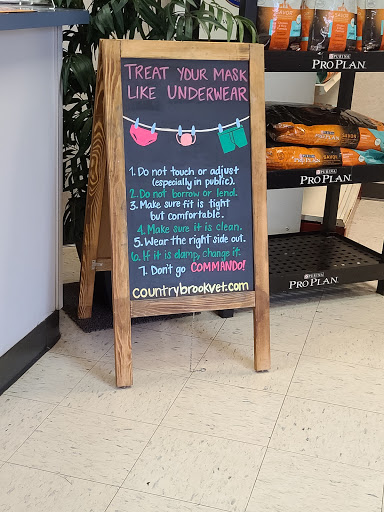 TREAT YOUR MASK
LIKE UNDERWEAR
1. Do not touch or adjust
(especially in public).
2. Do not borrow or lend.
3. Make sure fit is tight
but comfortable.
4. Make sure it is clean.
5. Wear the right side out.
6. If it is damp, change it.
7. Don't go COMMANDO!
countrybrookvet.com
PURINA
PRO PLAN
PURINA
PRO PLAN
PURINA
PRO PLAN
PRO PLAN